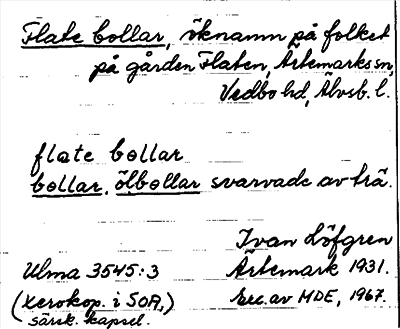 Flate bollar, öknamn på folket
på gården Flaten, Ärtemarks sn,
Vedbo hd, Älvsb. l.
flate bollar
bollar, ölbollar svarvade av trä.
Ivan Löfgren
Ulma 3545:3 Ärtemark 1931.
(xerokop. i SOA, Exc. av MDE, 1967.
särsk. kapsel.)